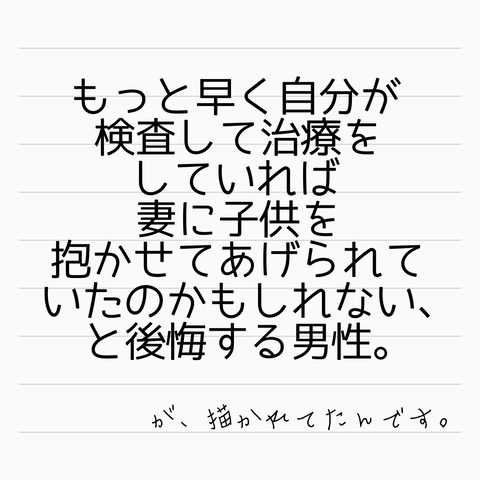 もっと早く自分が
検査して治療を
していれば
妻に子供を
抱かせてあげられて
いたのかもしれない、
と後悔する男性。
が、描かれてたんです。